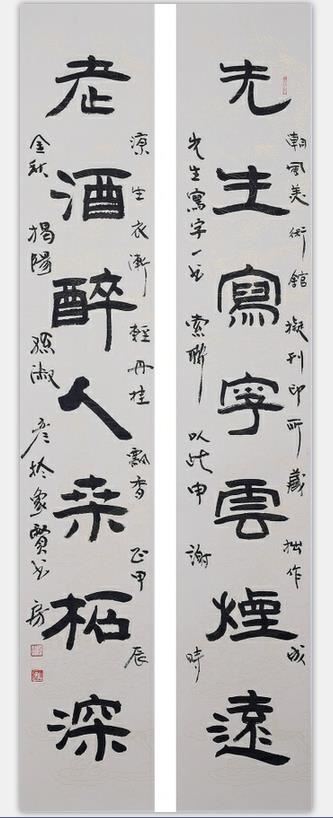 先生寫字雲煙遠
朝風美術館擬刊印所藏拙作成
先生寫字一书索聯以此申謝時
老酒醉人桒柘深
涼生衣漸輕丹桂飄香正甲辰
金秋揭陽孫淑彦於豪賢书房